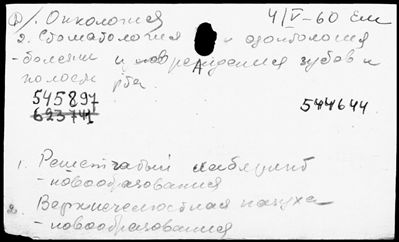 Ф/1. Онкология 4/V-60 Ем
2. Стоматология и одонтология
- болезни и повреждения зубов и
полости рта.
545897 544644
623741
1. Решетчатый лабиринт
- новообразования
2. Верхнечелюстная пазуха
- новообразования